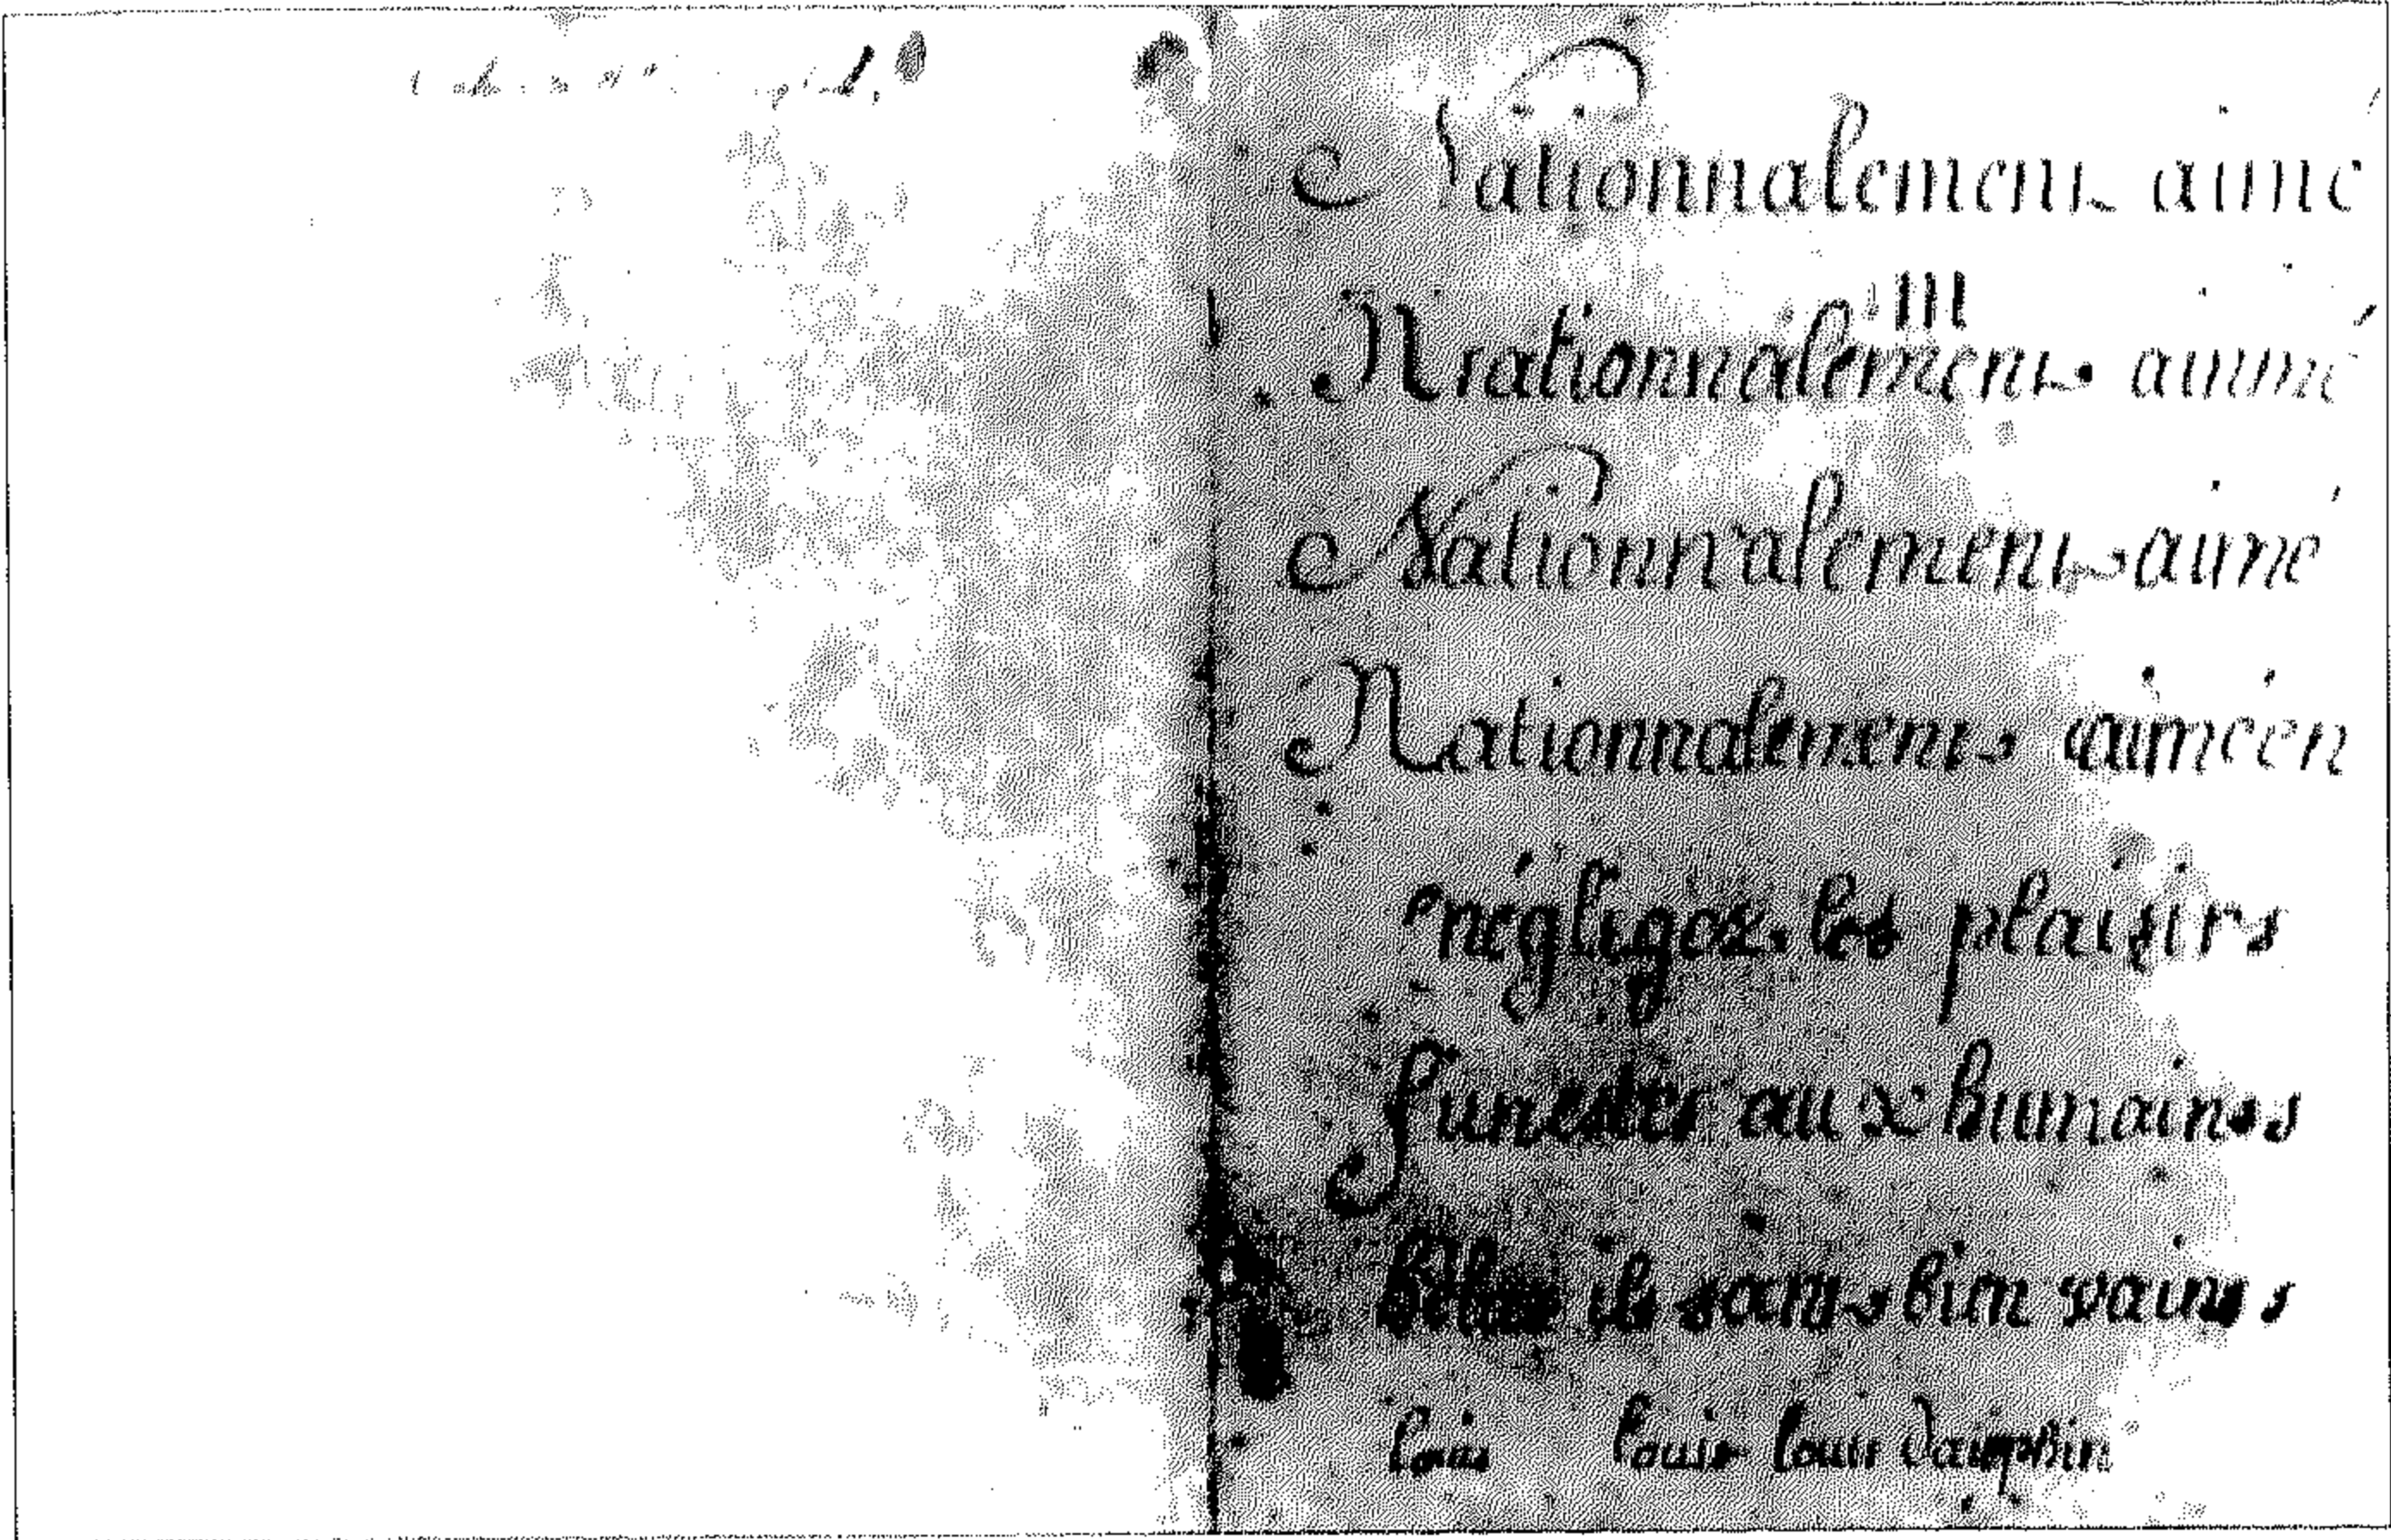 Nationnalement aimé
Nationnalement aimé
Nationnalement aimé
Nationnalement aiméen
négligez les plaisirs
funestes aux humains
ils sont bien vains
louis louis louis dauphin